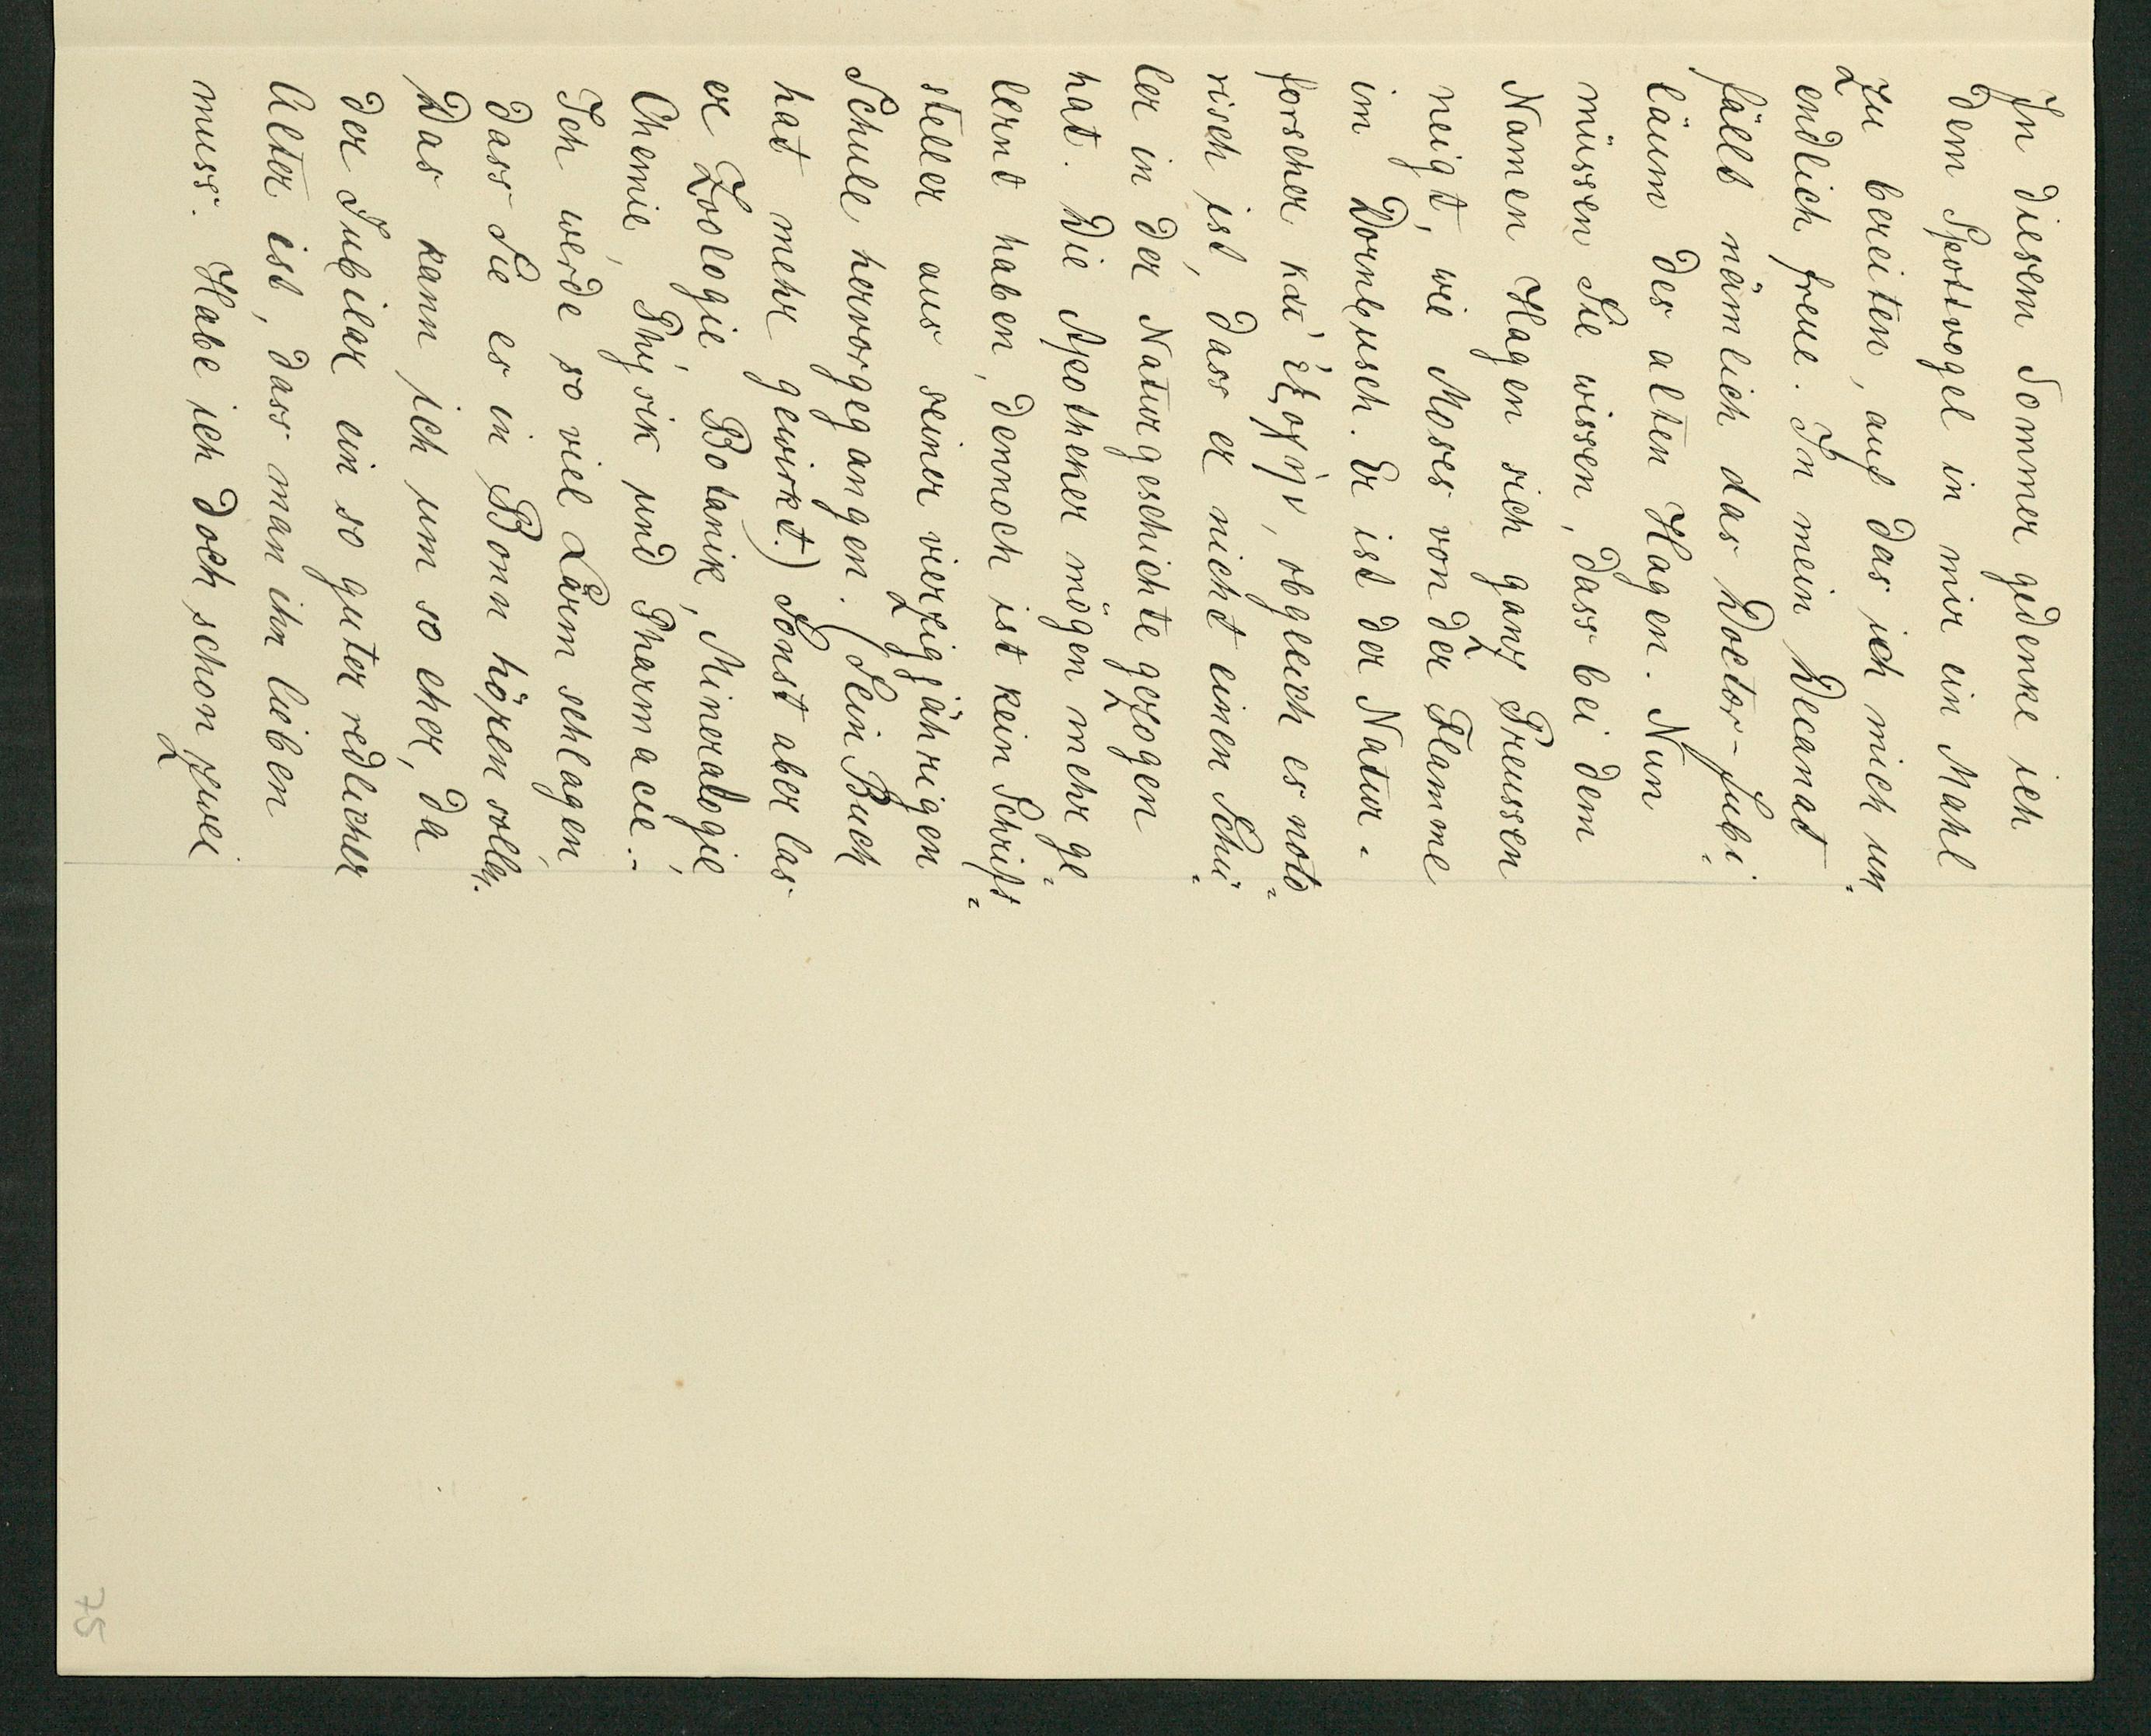 In diesem Sommer gedenke ich
dem Spottvogel in mir ein Mahl
zu bereiten, auf das ich mich un-
endlich freue. In mein Decanat
fällt nämlich das Doctor-Jubi-
läum des alten Hagen. Nun
müssen Sie wissen, dass bei dem
Namen Hagen sich ganz Preussen
neigt, wie Moses von der Flamme
im Dornbusch. Er ist der Natur-
forscher κατ' ἐξοχήν, obgleich es noto=
risch ist, dass er nicht einen Schü-
ler in der Naturgeschichte gezogen
hat. Die Apotheker mögen mehr ge=
lernt haben, dennoch ist kein Schrift=
steller aus seiner vierzigjährigen
Schule hervorgegangen. (Sein Buch
hat mehr gewirkt.) Sonst aber las
er Zoologie, Botanik, Mineralogie,
Chemie, Physik und Pharmacie.-
Ich werde so viel Lärm schlagen,
dass Sie es in Bonn hören solln.
Das kann ich um so eher, da
der Jubilar ein so guter redlicher
Alter ist, dass man ihn lieben
muss. Habe ich doch schon zwei
75